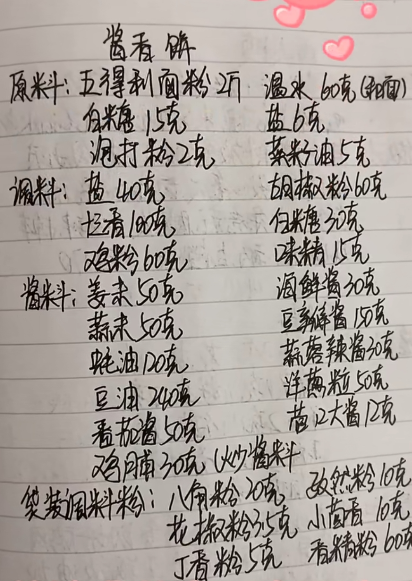 酱香饼
原料：五得利面粉2斤 温水60克(和面)
白糖15克 盐6克
泡打粉2克 菜籽油5克
调料：盐40克 胡椒粉60克
十三香100克 白糖30克
鸡粉60克 味精15克
酱料：姜末50克 海鲜酱30克
蒜末50克 豆瓣酱150克
蚝油120克 蒜蓉辣酱30克
豆油240克 洋葱粒50克
番茄酱50克 黄豆大酱12克
鸡月甫30克(火少酱料
袋装调料粉：八角粉20克 孜然粉10克
花椒粉35克 小茴香10克
丁香粉5克 香精粉60克